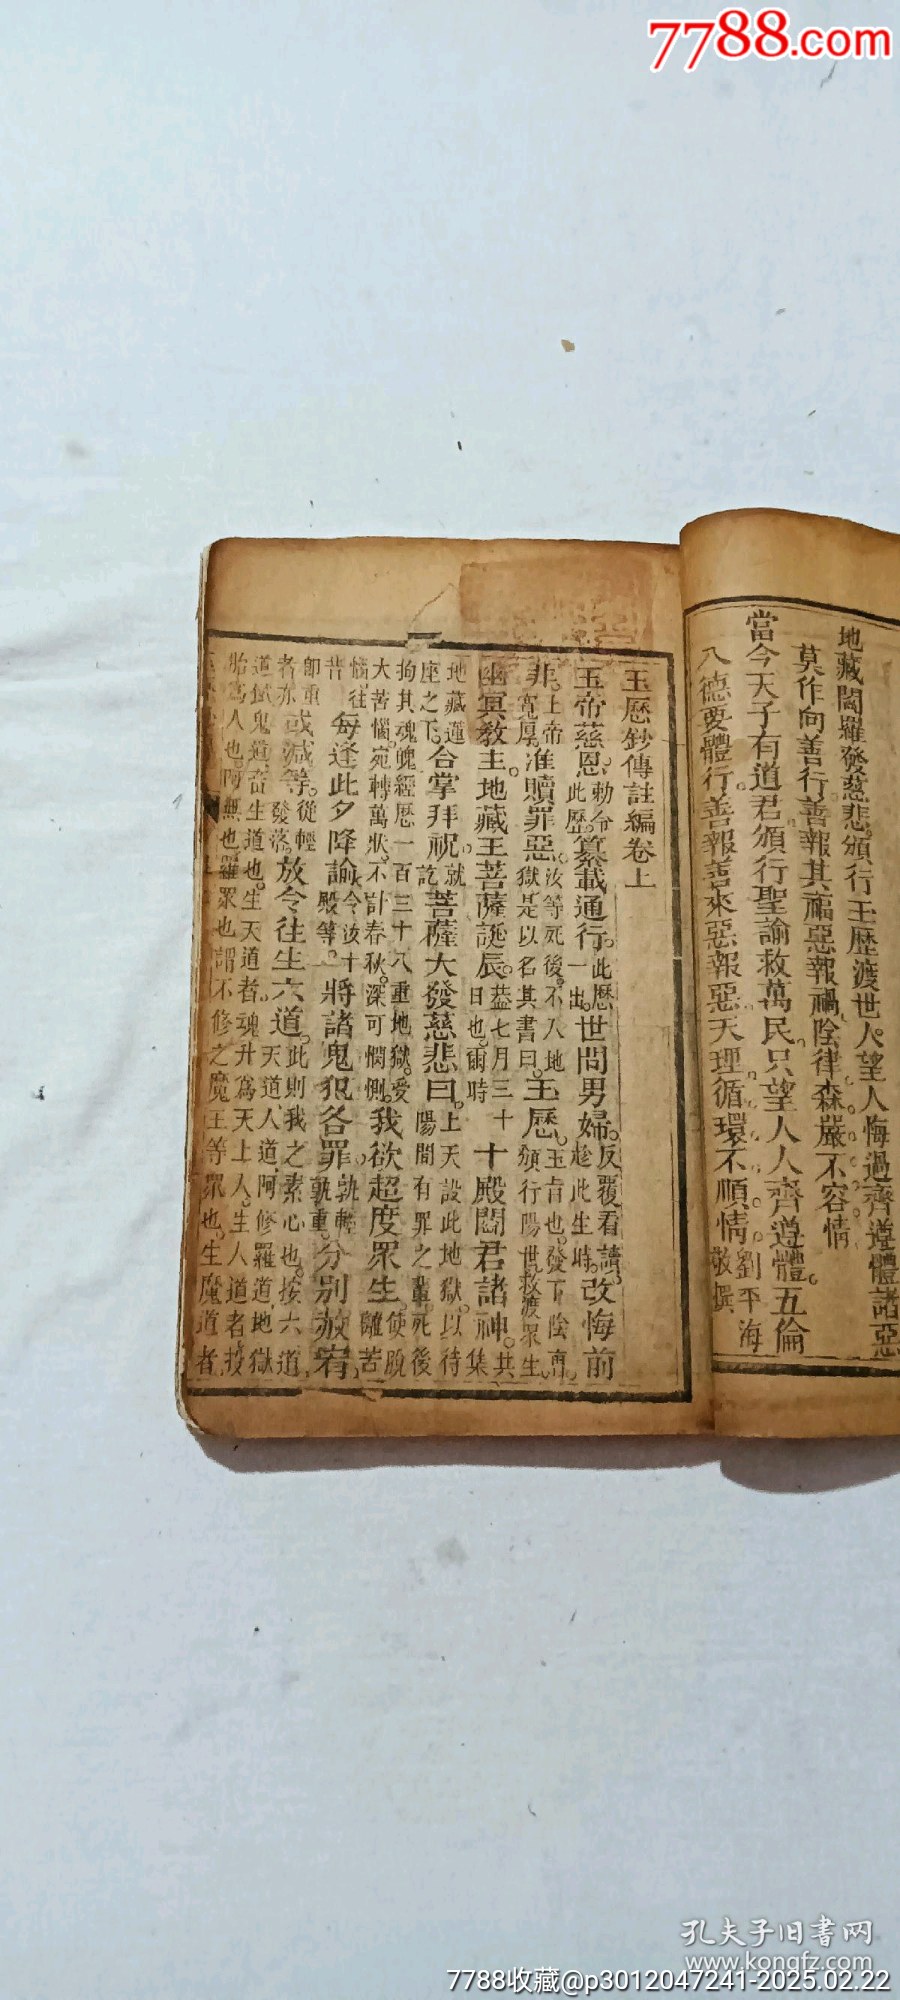 7788.com
地藏閻羅發慈悲。頒行玉歷渡世人。望人悔過齊遵體。諸惡
莫作向善行。善報其福惡報禍。陰律森嚴不容情
當今天子有道君。頒行聖諭救萬民。只望人人齊遵體。五倫
八德要體行。善報善來惡報惡。天理循環不順情。劉平海敬撰
玉歷鈔傳註編卷上
玉帝慈恩。勅令此歷。纂載通行。此歷一出。世間男婦。反覆看讀。趁此生時。改悔前
非。上帝寬厚。准贖罪惡。汝等死後。不入地獄。是以名其書曰。玉歷。玉旨也。發下陰府。頒行陽世。救渡眾生。
幽冥教主。地藏王菩薩誕辰。蓋七月三十日也。爾時十殿閻君諸神。共集
地藏蓮座之下。合掌拜祝。就訖菩薩大發慈悲曰。上天設此地獄。以待陽間有罪之輩。死後
拘其魂魄。經歷一百三十八重地獄。受大苦惱。宛轉萬狀。不計春秋。深可憫惻。我欲超度眾生。使脫離苦
惱。往昔每逢此夕降諭。令汝十殿等。將諸鬼犯各罪。孰輕孰重。分別赦宥
即重者亦或減等。從輕發落。放令往生六道。此則我之素心也。按六道。
天道。人道。阿修羅道。地獄道。餓鬼道。畜生道也。生天道者。魂升為天上人。生人道者。投
胎為人也。阿無也。羅眾也。謂不修之魔王等眾也。生魔道者。
孔夫子旧書网
www.kongfz.com
7788收藏@p3012047241-2025.02.22